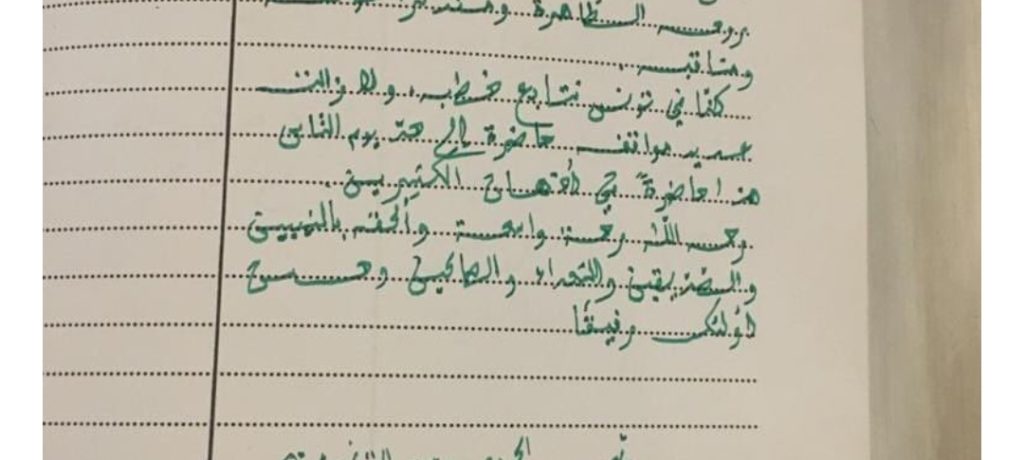 روحه الطاهرة
ومناقبه.
كنّا في تونس نتابع خطبه، ولا زالت
عديد مواقفه حاضرة إلى حدّ يوم الناس
هذا حاضرةً في أذهان الكثيرين.
رحمه اللّه رحمة واسعة وألحقه بالنبيين
والصدّيقين والشهداء والصالحين وحسن
أولئك رفيقًا